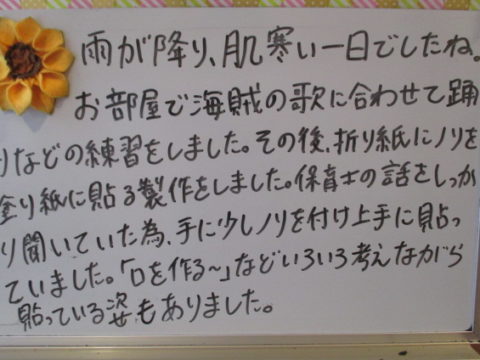 雨が降り、肌寒い一日でしたね。
お部屋で海賊の歌に合わせて踊
りなどの練習をしました。その後、折り紙にノリを
塗り紙に貼る製作をしました。保育士の話をしっか
り聞いていた為、手に少しノリを付け上手に貼っ
ていました。「口を作る~」などいろいろ考えながら
貼っている姿もありました。